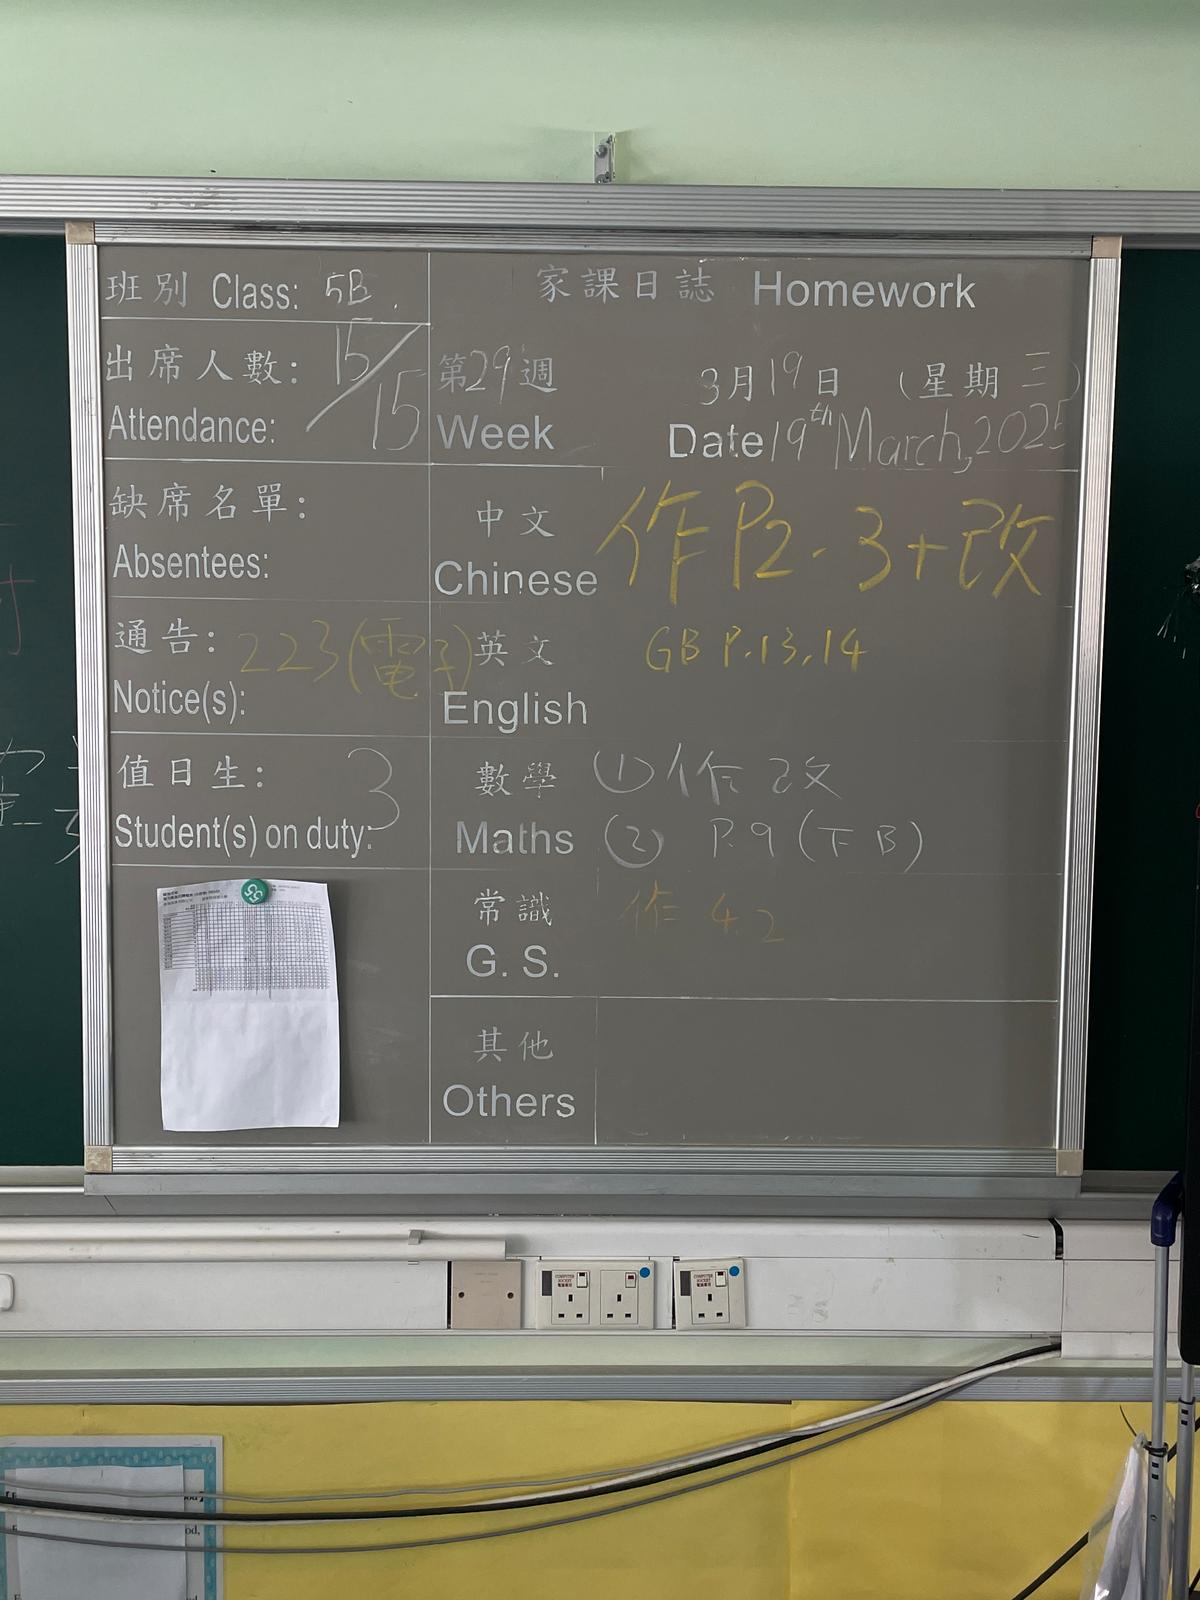 班別 Class: 5B.
家課日誌 Homework
出席人數: 15/15
Attendance:
第29週
Week
3月19日 (星期三)
Date 19th March, 2025
缺席名單:
Absentees:
中文 作 P2-3+改
Chinese
通告: 223(電子)
Notice(s):
英文 GB P.13,14
English
值日生: 3
Student(s) on duty:
數學 (1) 作改
Maths (2) P.9 (下B)
常識 作 4.2
G. S.
其他
Others
COMPUTER SOCKET
COMPUTER SOCKET